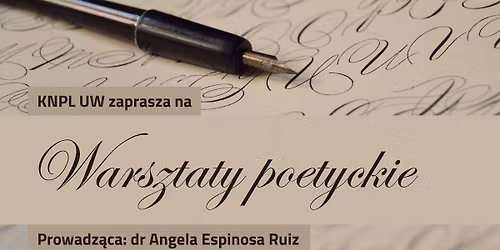 KNPL UW zaprasza na
Warsztaty poetyckie
Prowadząca: dr Angela Espinosa Ruiz